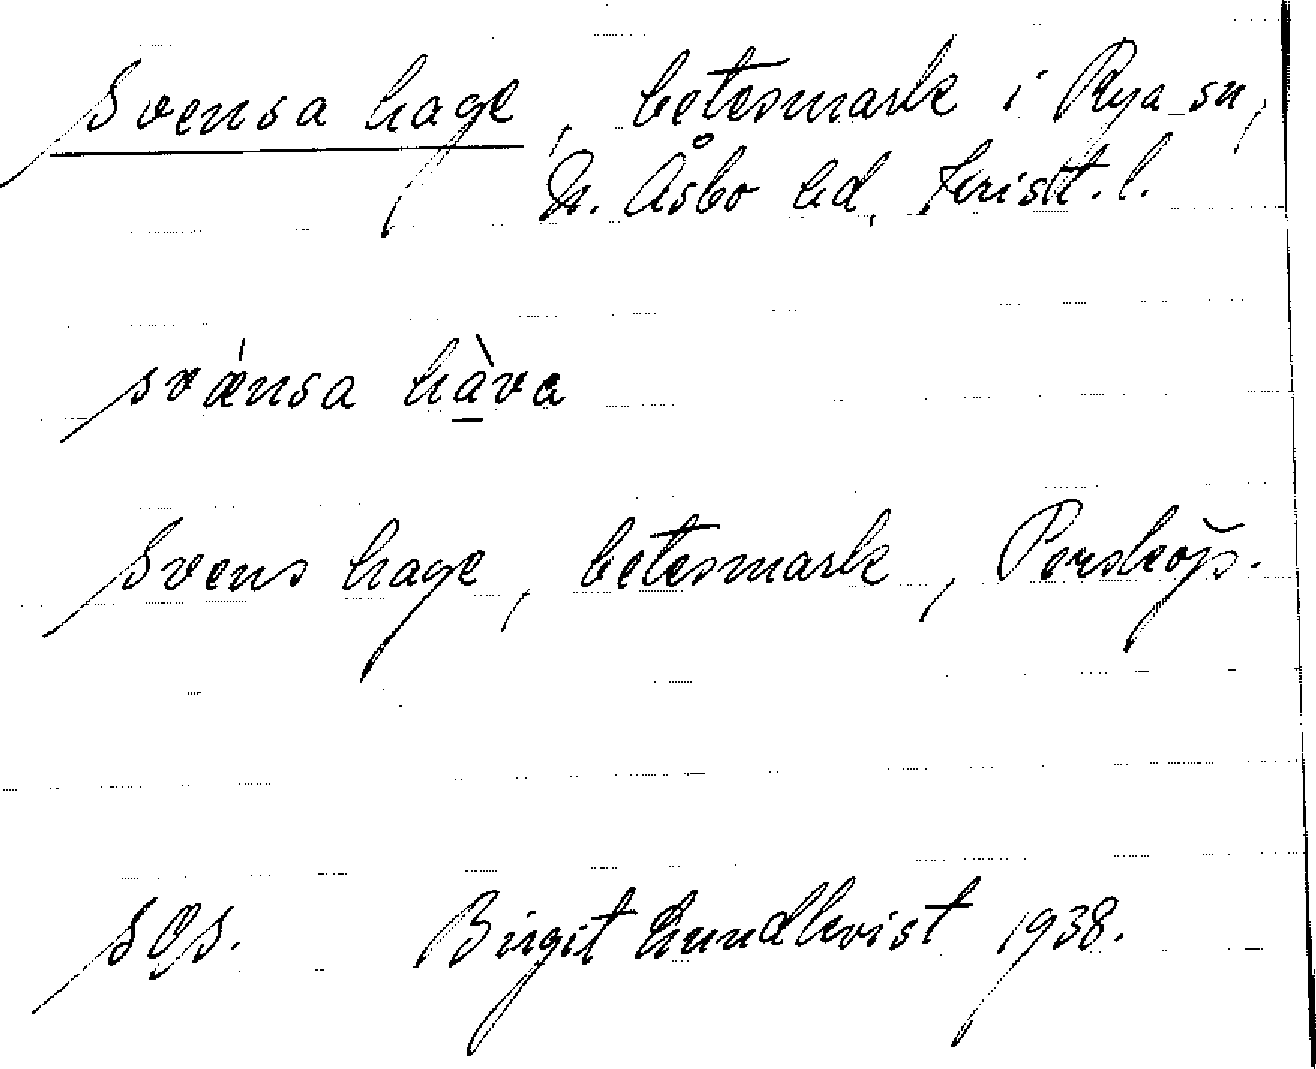 Svensa hage, betesmark i Rya sn,
N. Åsbo hd, Kristt. l.
svænsa hàva
Svens hage, betesmark,
Birgit Lundkvist 1938.